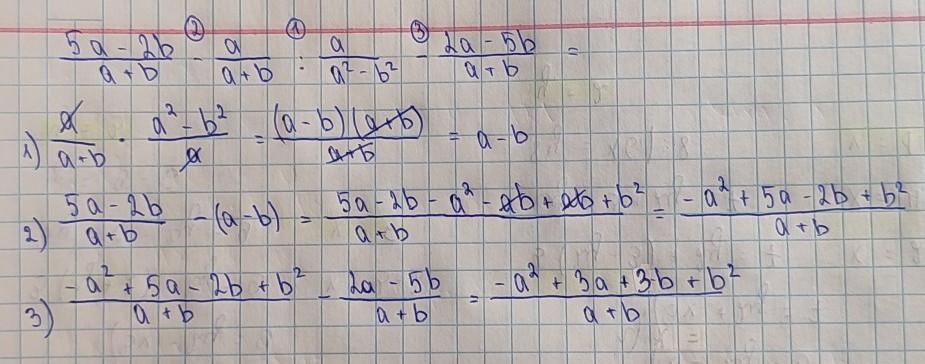 (5a - 2b)/(a + b) ② - a/(a + b) ① : a/(a² - b²) ③ - (2a - 5b)/(a + b) =
1) a/(a + b) · (a² - b²)/a = (a - b)(a + b)/(a + b) = a - b
2) (5a - 2b)/(a + b) - (a - b) = (5a - 2b - a² - ab + ab + b²)/(a + b) = (-a² + 5a - 2b + b²)/(a + b)
3) (-a² + 5a - 2b + b²)/(a + b) - (2a - 5b)/(a + b) = (-a² + 3a + 3b + b²)/(a + b)